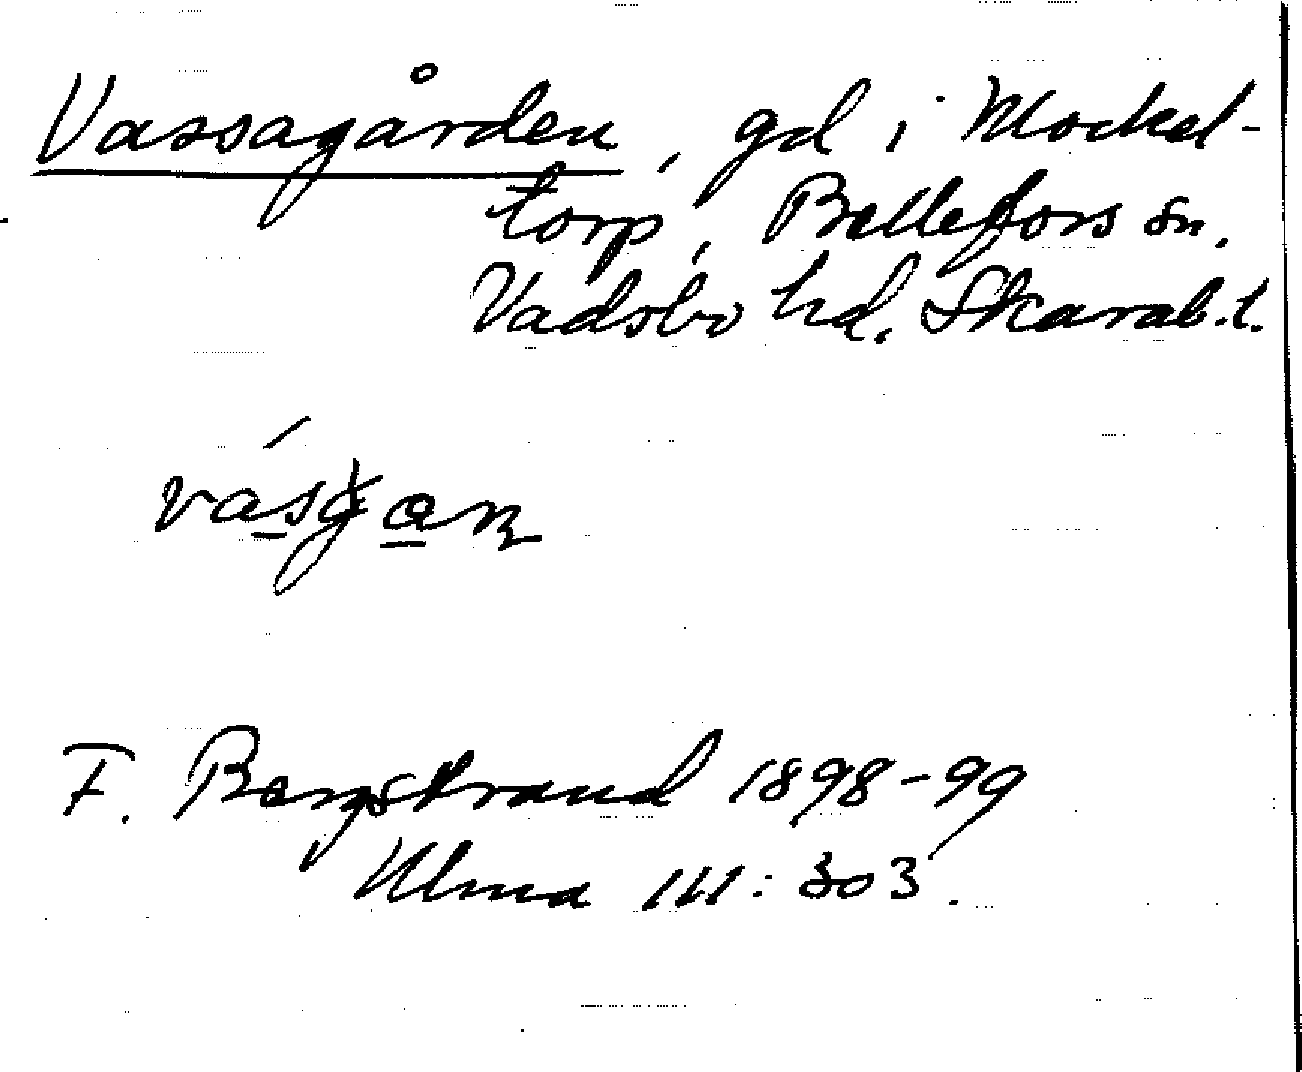 Vassagården, gd i Mockel-
torp, Bellefors sn.
Vadsbo hd. Skarab. l.
F. Bergstrand 1898-99
Ulma 111:303.